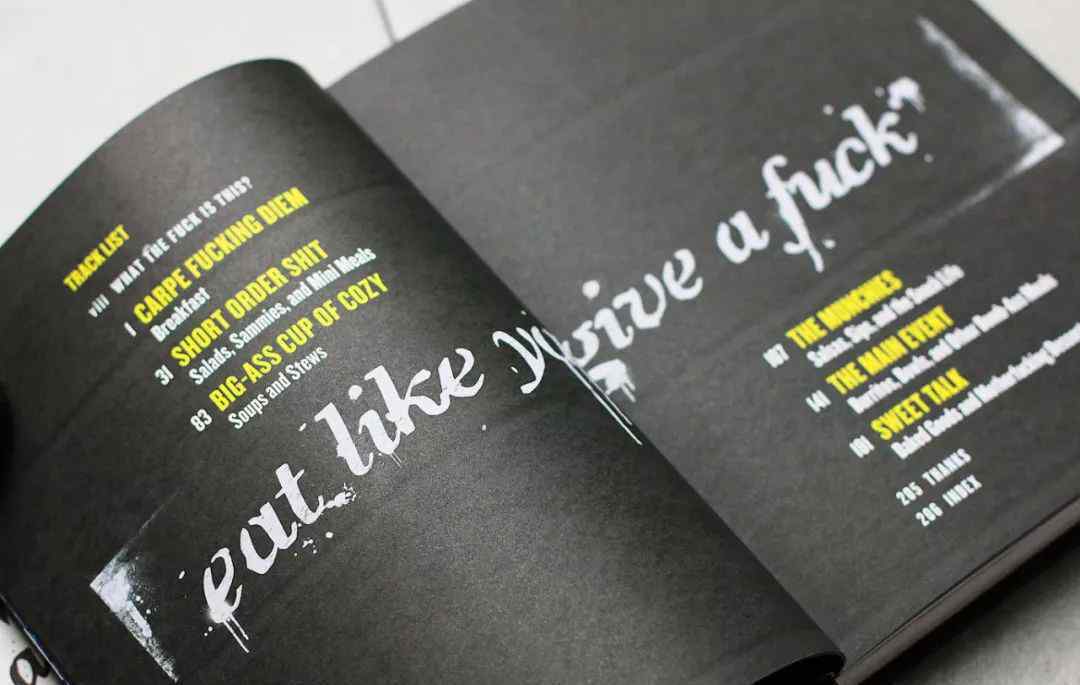 TRACK LIST
viii WHAT THE FUCK IS THIS?
1 CARPE FUCKING DIEM
Breakfast
31 SHORT ORDER SHIT
Salads, Sammies, and Mini Meals
83 BIG-ASS CUP OF COZY
Soups and Stews
eat like you give a fuck"
107 THE MUNCHIES
Salsa, Sips, and the Snack Life
141 THE MAIN EVENT
Burritos, Bowls, and Other Bomb Ass Meals
181 SWEET TALK
Baked Goods and Motherfucking
205 THANKS
206 INDEX